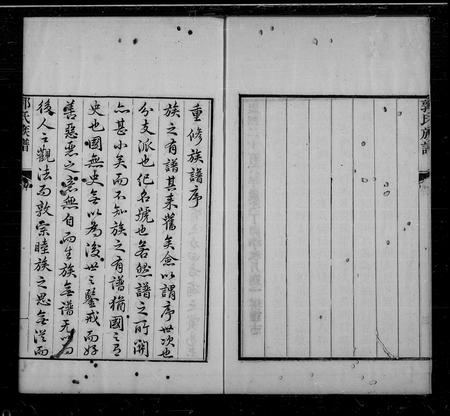 郭氏族譜
重修族譜序
族之有譜其来舊矣僉以謂序世次也
分支派也纪名號也若然譜之所關
亦甚小矣而不知族之有譜猶國之有
史也國無史無以為後世之鑒戒而好
善惡惡之念無自而生族無譜无以為
後人之觀法而敦宗睦族之思無從而
郭氏族譜